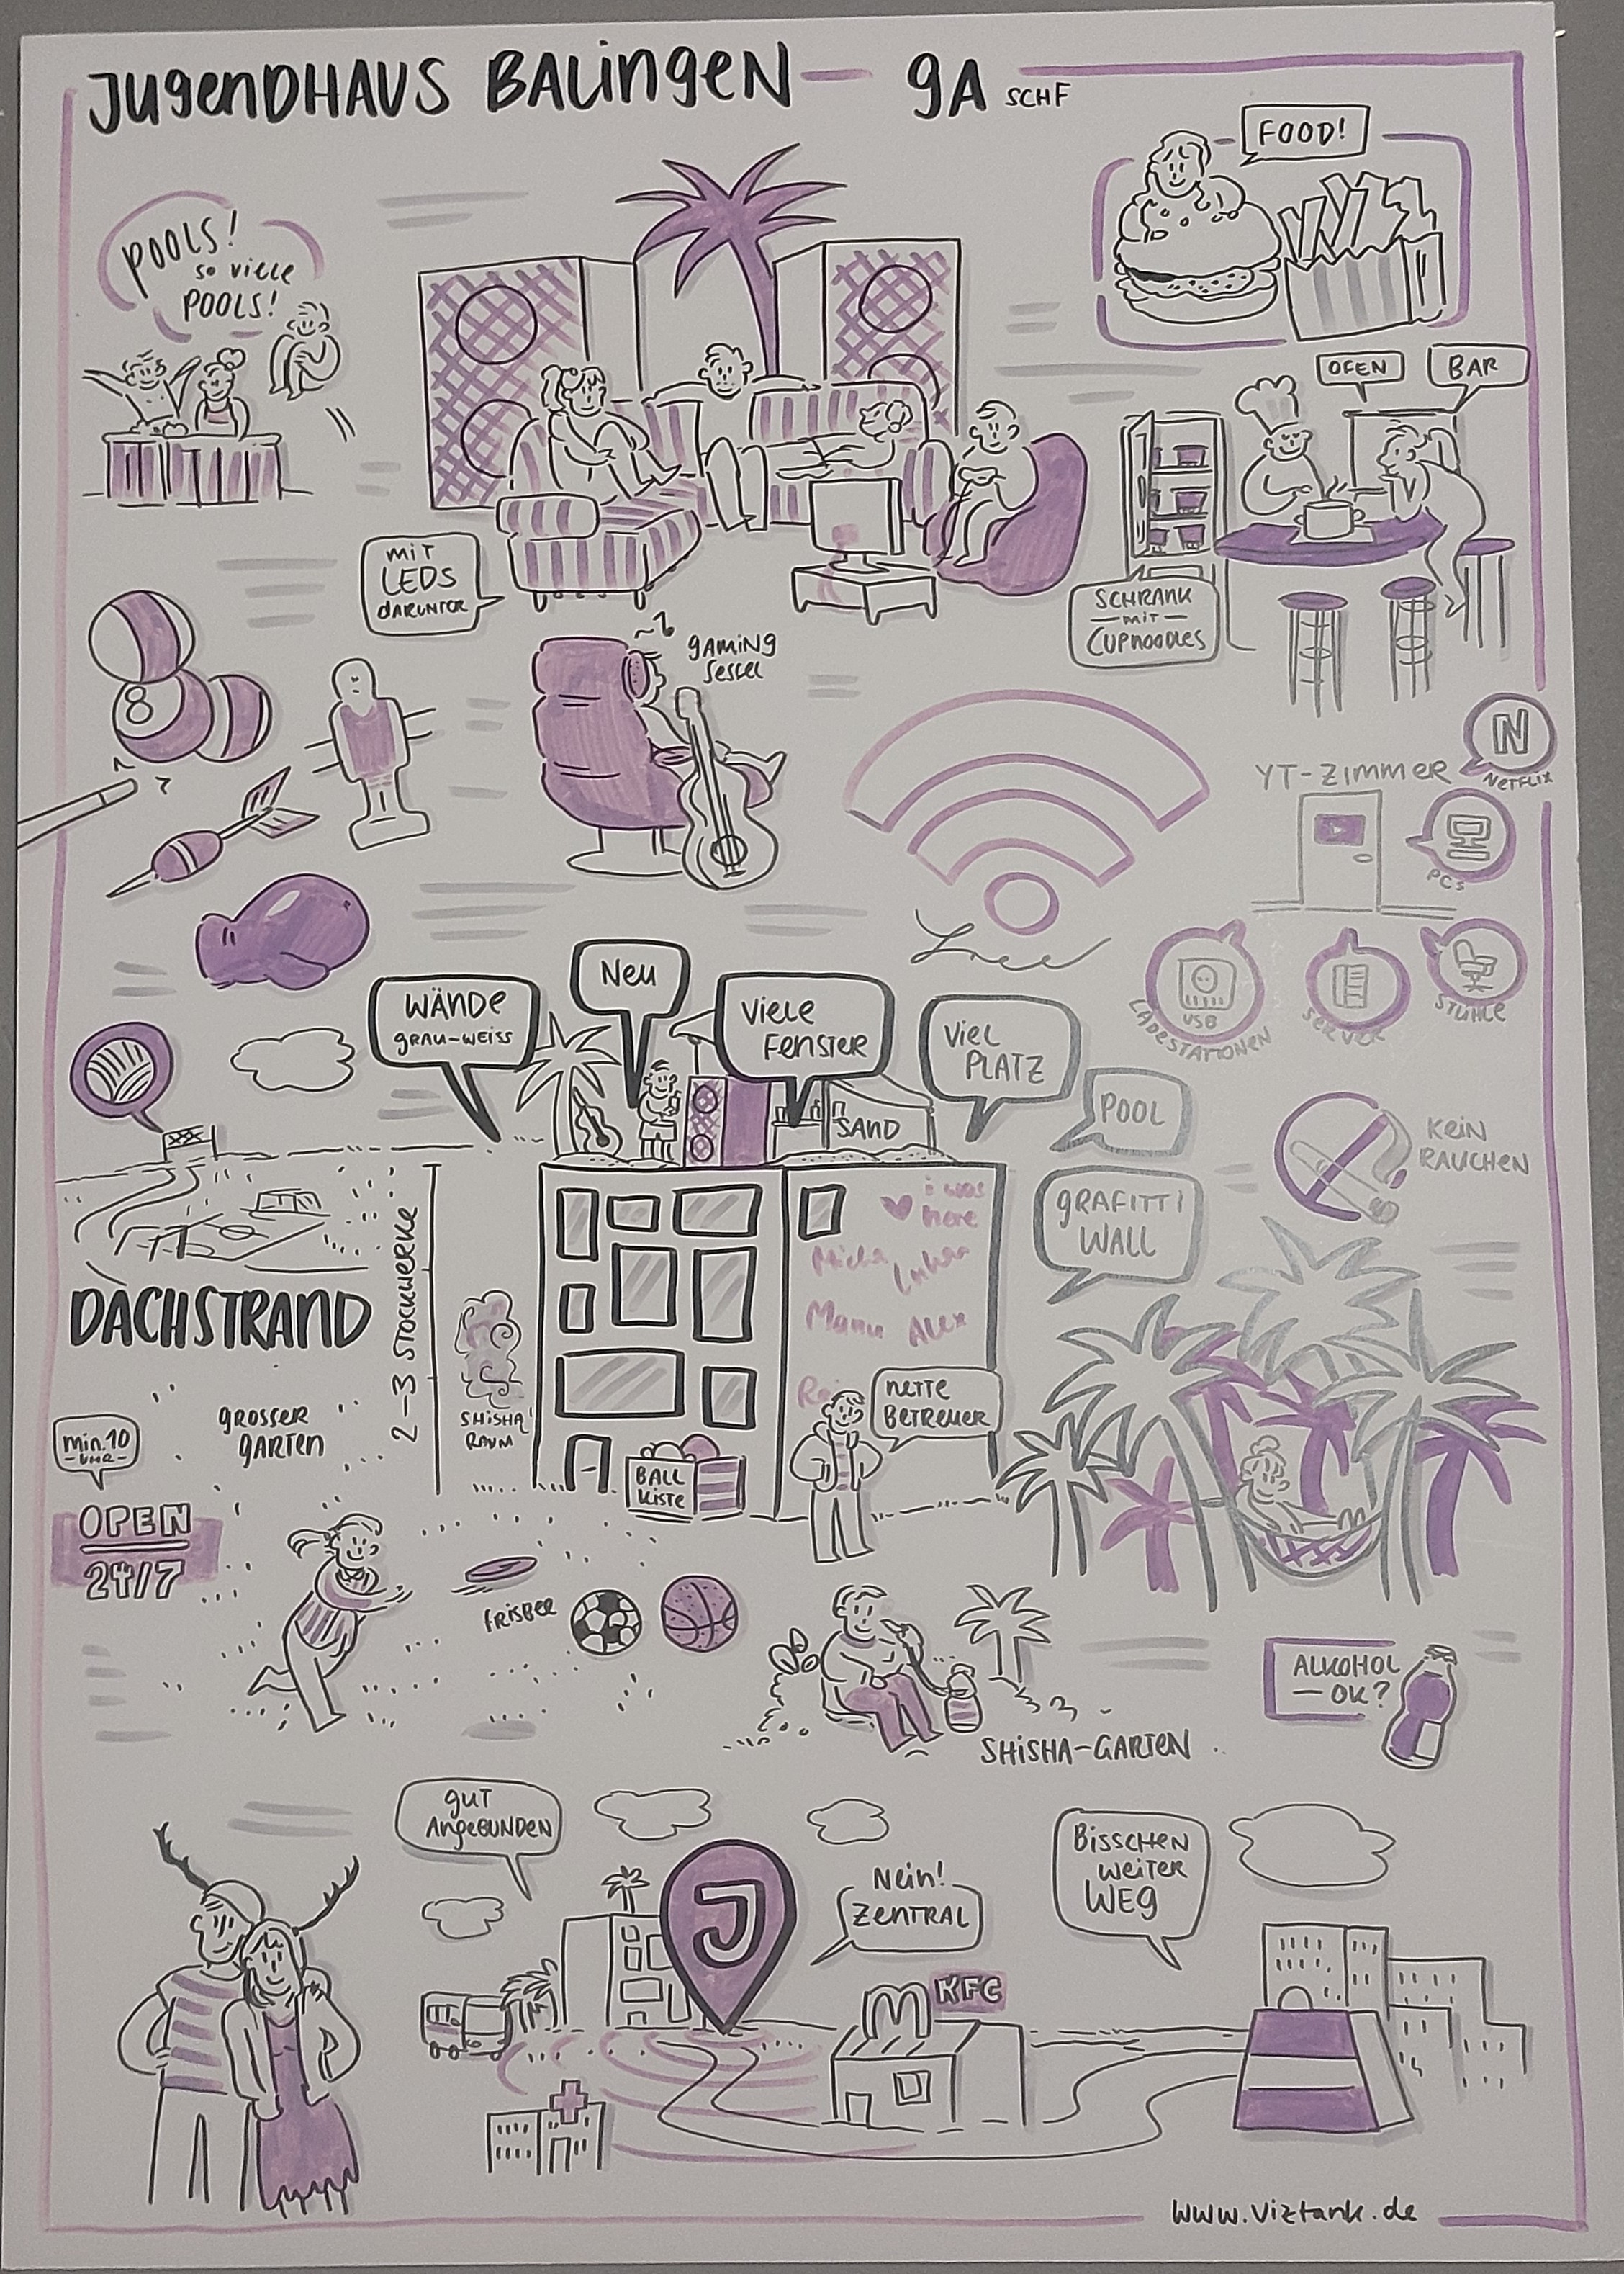 JUgenDHAUS BALingeN — 9A SCHF
FOOD!
POOLS!
so viele
POOLS!
OFEN
BAR
mit
LEDS
DARUNTER
SCHRANK
— mit —
CUPNOODLES
gAMiNg
Sessel
8
N
NETFLIX
YT-ZIMMER
PCs
Free
USB
LADESTATIONEN
SERVER
STÜHLE
WÄNDe
gRAU-WEISS
Neu
Viele
FENSTER
Viel
PLATZ
POOL
SAND
KEIN
RAUCHEN
gRAFITTI
WALL
i was
here
Micha
Manu Alex
DACHSTRAND
2-3 STOCKWERKE
SHISHA
RAUM
nette
BETREUER
gROSSER
gARTEN
min. 10
- UHR -
OPEN
24/7
BALL
KISTE
FRISBEE
ALKOHOL
— OK?
SHISHA-GARTEN
gUT
AngeBUNDEN
Nein!
ZENTRAL
BISSCHEN
WEITER
WEG
J
M
KFC
www.viztank.de